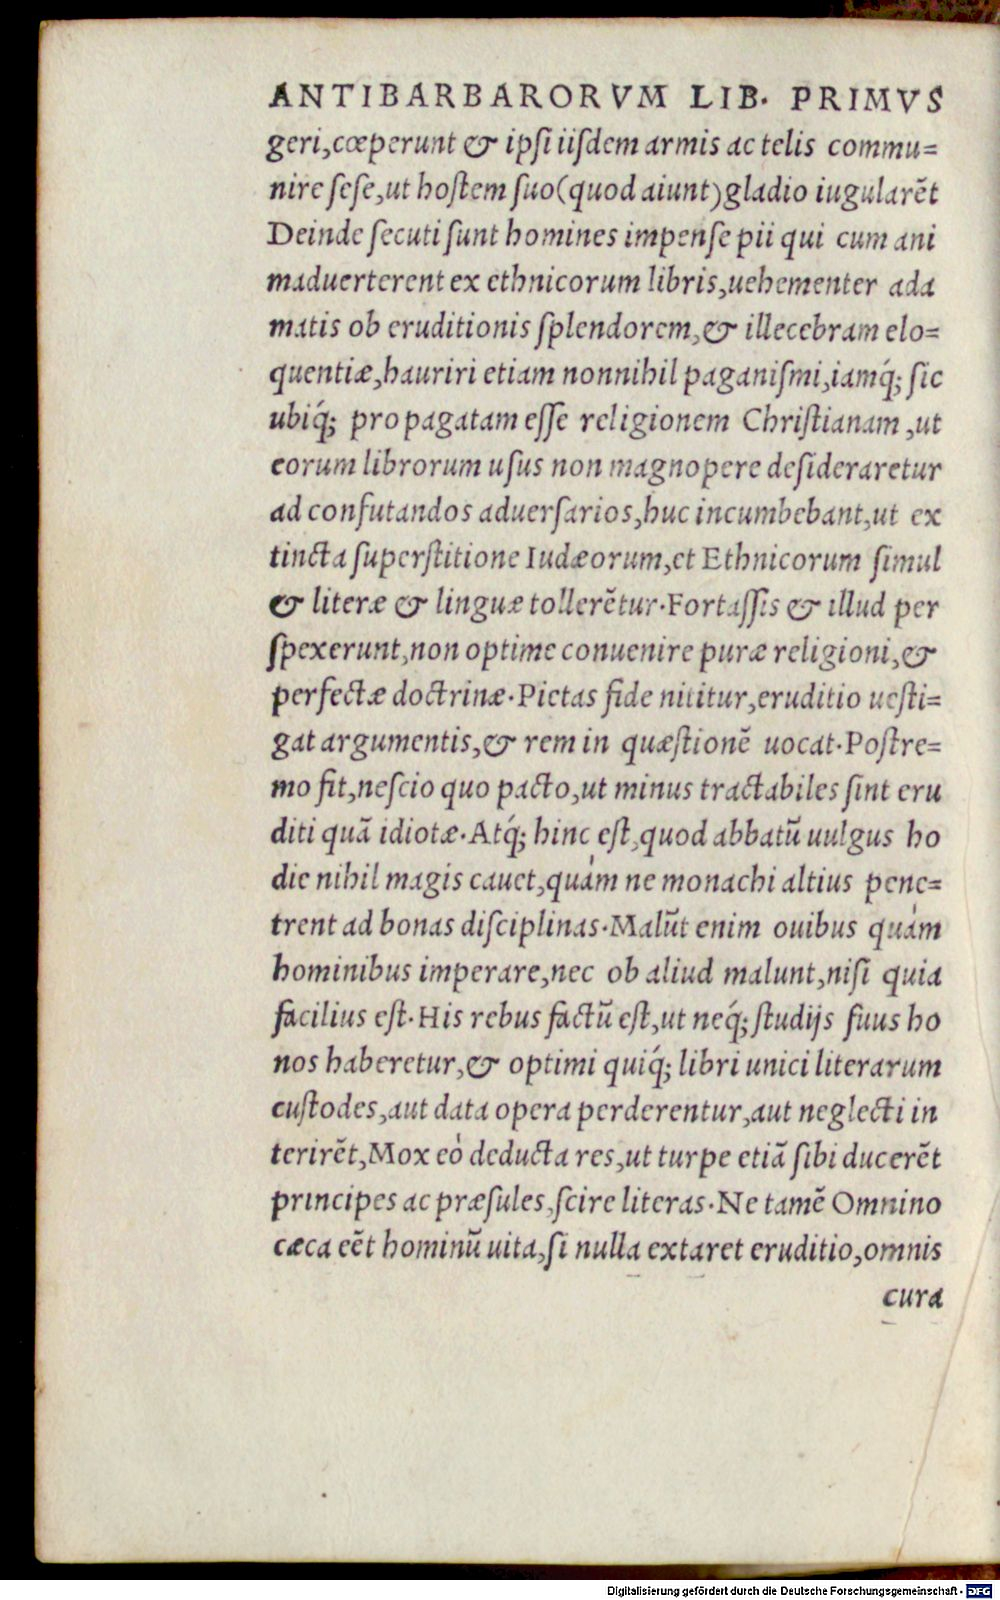 ANTIBARBARORVM LIB. PRIMVS
geri,cœperunt & ipsi iisdem armis ac telis commu=
nire sese,ut hostem suo(quod aiunt)gladio iugularẽt
Deinde secuti sunt homines impense pii qui cum ani
maduerterent ex ethnicorum libris,uehementer ada
matis ob eruditionis splendorem,& illecebram elo=
quentiæ,hauriri etiam nonnihil paganismi,iamq́; sic
ubiq́; propagatam esse religionem Christianam,ut
eorum librorum usus non magnopere desideraretur
ad confutandos aduersarios,huc incumbebant,ut ex
tincta superstitione Iudæorum,et Ethnicorum simul
& literæ & linguæ tollerẽtur.Fortassis & illud per
spexerunt,non optime conuenire puræ religioni,&
perfectæ doctrinæ.Pietas fide nititur,eruditio uesti=
gat argumentis,& rem in quæstionẽ uocat.Postre=
mo fit,nescio quo pacto,ut minus tractabiles sint eru
diti quã idiotæ.Atq́; hinc est,quod abbatũ uulgus ho
die nihil magis cauet,quàm ne monachi altius pene=
trent ad bonas disciplinas.Malũt enim ouibus quàm
hominibus imperare,nec ob aliud malunt,nisi quia
facilius est.His rebus factũ est,ut neq́; studijs suus ho
nos haberetur,& optimi quiq́; libri unici literarum
custodes,aut data opera perderentur,aut neglecti in
terirẽt,Mox eò deducta res,ut turpe etiã sibi ducerẽt
principes ac præsules,scire literas.Ne tamẽ Omnino
cæca eẽt hominũ uita,si nulla extaret eruditio,omnis
cura
Digitalisierung gefördert durch die Deutsche Forschungsgemeinschaft - DFG